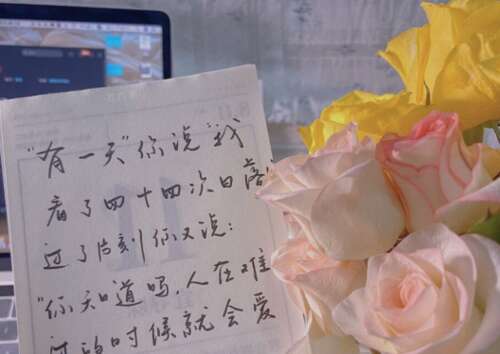 "有一天"你说"我
看了四十四次日落
过了片刻你又说：
"你知道吗，人在难
过的时候就会爱
11